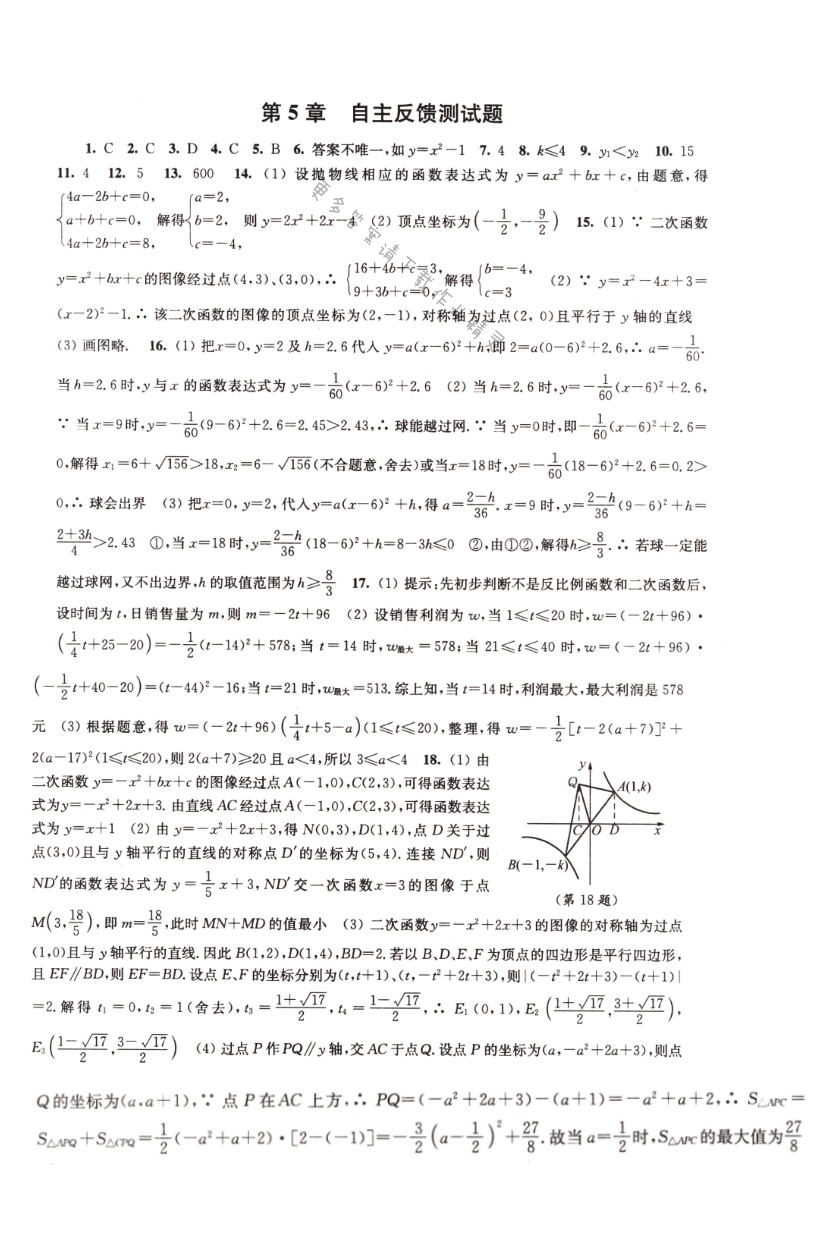 第 5 章　自主反馈测试题
1. C　2. C　3. D　4. C　5. B　6. 答案不唯一,如 y=x²－1　7. 4　8. k≤4　9. y₁＜y₂　10. 15
11. 4　12. 5　13. 600　14. (1) 设抛物线相应的函数表达式为 y=ax²+bx+c,由题意,得
{4a－2b+c=0, a+b+c=0, 4a+2b+c=8, 解得{a=2, b=2, c=－4, 则 y=2x²+2x－4　(2) 顶点坐标为(－1/2,－9/2)　15. (1) ∵ 二次函数
y=x²+bx+c的图像经过点(4,3)、(3,0),∴ {16+4b+c=3, 9+3b+c=0, 解得{b=－4, c=3　(2) ∵ y=x²－4x+3=
(x－2)²－1.∴ 该二次函数的图像的顶点坐标为(2,－1),对称轴为过点(2, 0)且平行于 y 轴的直线
(3) 画图略.　16. (1) 把x=0, y=2 及 h=2.6代人 y=a(x－6)²+h,即 2=a(0－6)²+2.6,∴ a=－1/60.
当 h=2.6 时,y 与 x 的函数表达式为 y=－1/60(x－6)²+2.6　(2) 当 h=2.6 时,y=－1/60(x－6)²+2.6,
∵ 当 x=9时,y=－1/60(9－6)²+2.6=2.45>2.43,∴ 球能越过网.∵ 当 y=0时,即－1/60(x－6)²+2.6=
0,解得 x₁=6+√156>18,x₂=6－√156(不合题意,舍去)或当x=18时,y=－1/60(18－6)²+2.6=0.2>
0,∴ 球会出界　(3) 把x=0, y=2,代人y=a(x－6)²+h,得 a=(2－h)/36. x=9 时,y=(2－h)/36(9－6)²+h=
(2+3h)/4>2.43　①,当 x=18 时,y=(2－h)/36(18－6)²+h=8－3h≤0　②,由①②,解得h≥8/3.∴ 若球一定能
越过球网,又不出边界,h 的取值范围为 h≥8/3　17. (1) 提示:先初步判断不是反比例函数和二次函数后,
设时间为 t,日销售量为 m,则 m=－2t+96　(2) 设销售利润为 w,当 1≤t≤20 时,w=(－2t+96)·
(1/4t+25－20)=－1/2(t－14)²+578;当 t=14 时,w最大=578;当 21≤t≤40 时,w=(－2t+96)·
(－1/2t+40－20)=(t－44)²－16;当 t=21 时,w最大=513.综上知,当 t=14 时,利润最大,最大利润是 578
元　(3) 根据题意,得 w=(－2t+96)(1/4t+5－a)(1≤t≤20),整理,得 w=－1/2[t－2(a+7)]²+
2(a－17)²(1≤t≤20),则 2(a+7)≥20 且 a<4,所以 3≤a<4　18. (1) 由
二次函数 y=－x²+bx+c 的图像经过点 A(－1,0),C(2,3),可得函数表达
式为y=－x²+2x+3. 由直线 AC 经过点 A(－1,0),C(2,3),可得函数表达
式为 y=x+1　(2) 由 y=－x²+2x+3,得 N(0,3),D(1,4),点 D 关于过
点(3,0)且与 y 轴平行的直线的对称点 D′的坐标为(5,4). 连接 ND′,则
ND′的函数表达式为 y=1/5x+3, ND′交一次函数x=3的图像 于点
y
Q
A(1,k)
C
O
D
x
B(－1,－k)
(第 18 题)
M(3,18/5),即 m=18/5,此时 MN+MD 的值最小　(3) 二次函数y=－x²+2x+3 的图像的对称轴为过点
(1,0)且与 y 轴平行的直线. 因此 B(1,2),D(1,4),BD=2. 若以 B、D、E、F 为顶点的四边形是平行四边形,
且 EF∥BD,则 EF=BD. 设点 E、F 的坐标分别为(t,t+1)、(t,－t²+2t+3),则|(－t²+2t+3)－(t+1)|
=2. 解得 t₁=0, t₂=1(舍去), t₃=(1+√17)/2, t₄=(1－√17)/2,∴ E₁(0,1), E₂((1+√17)/2,(3+√17)/2),
E₃((1－√17)/2,(3－√17)/2)　(4) 过点 P 作PQ∥y 轴,交 AC 于点Q. 设点 P 的坐标为(a,－a²+2a+3),则点
Q的坐标为(a,a+1),∵ 点 P 在 AC 上方,∴ PQ=(－a²+2a+3)－(a+1)=－a²+a+2,∴ S△APC=
S△APQ+S△CPQ=1/2(－a²+a+2)·[2－(－1)]=－3/2(a－1/2)²+27/8.故当 a=1/2时,S△APC的最大值为27/8
更多答案请下载作业精灵